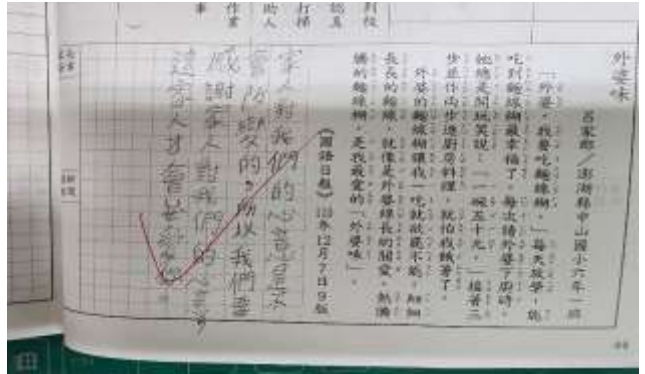 外婆味
呂家郎／澎湖縣中山國小六年一班
「外婆，我要吃麵線糊。」每天放學，能
吃到麵線糊最幸福了。每次請外婆下廚時，
她總是開玩笑說：「一碗五十元。」接著三
步並作兩步進廚房料理，就怕我餓著了。
外婆的麵線糊讓我一吃就欲罷不能，細細
長長的麵線，就像是外婆綿長的關愛，熱騰
騰的麵線糊，是我最愛的「外婆味」。
《國語日報》110年12月7日9版
家人對我們的心意是不
會改變的。所以我們要
感謝家人對我們的心意，
這家人才會
到校
認真
打掃
助人
作業
事